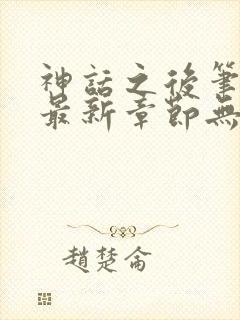 神話之後筆
最新章節無
趙楚侖